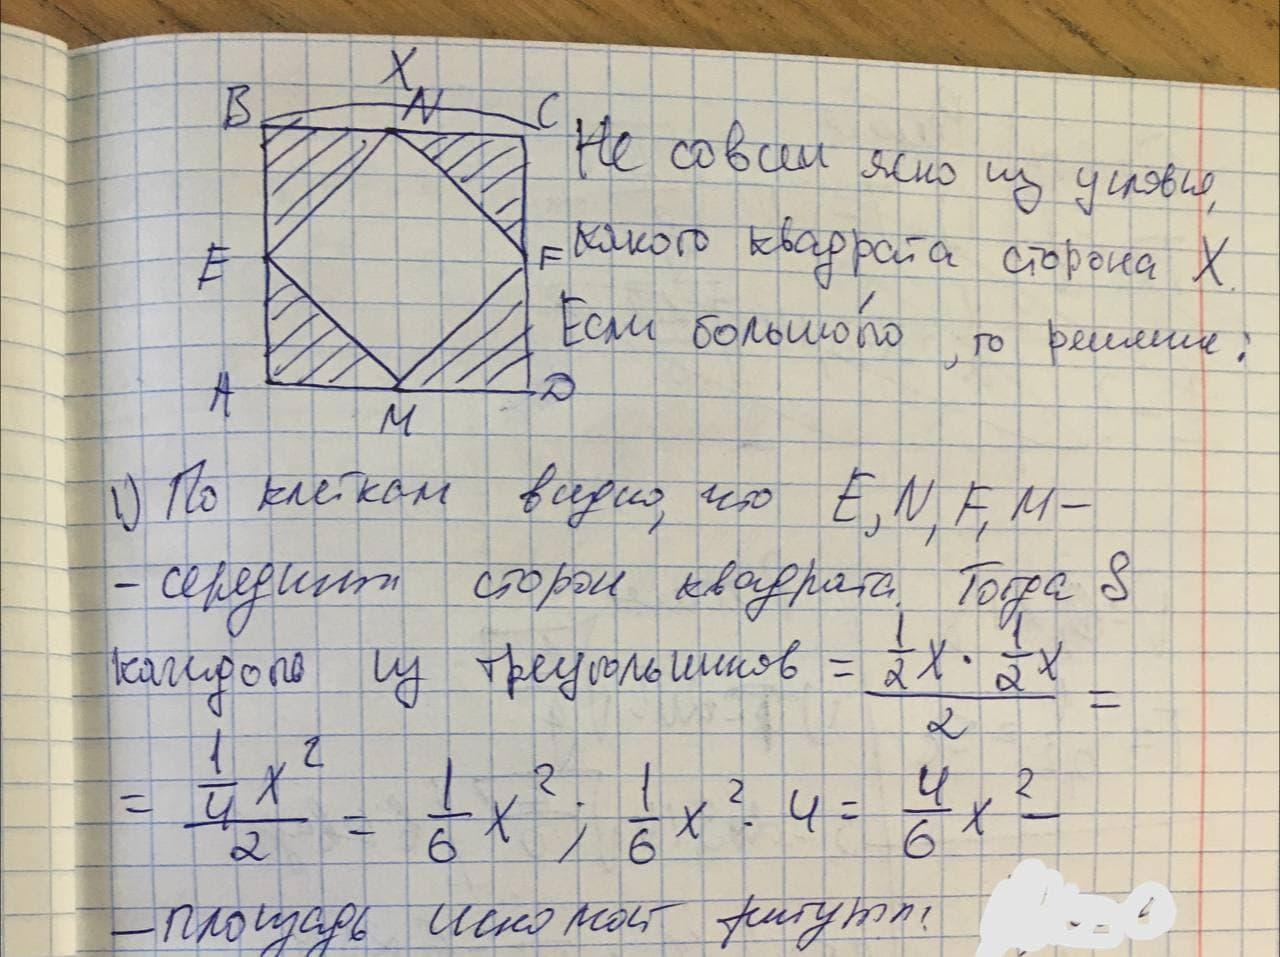 X
B N C
E F
A M D
Не совсем ясно из условия,
какого квадрата сторона X.
Если большого, то решение:
1) По клеткам видно, что E, N, F, M –
– середины сторон квадрата. Тогда S
каждого из треугольников = (1/2 X · 1/2 X)/2 =
= (1/4 X²)/2 = 1/6 X²; 1/6 X² · 4 = 4/6 X² –
– площадь искомой фигуры.